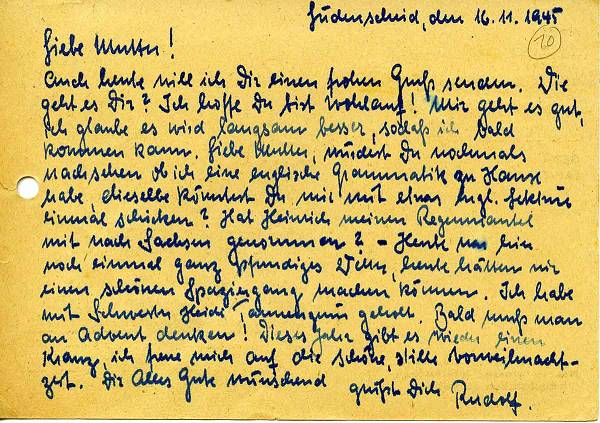 Lüdenscheid, den 16.11.1945
20
Liebe Mutter!
Auch heute will ich Dir einen frohen Gruß senden. Wie
geht es Dir? Ich hoffe Du bist wohlauf! Mir geht es gut,
ich glaube es wird langsam besser, sodaß ich bald
kommen kann. Liebe Mutter, würdest Du nochmals
nachsehen ob ich eine englische Grammatik zu Hause
habe, dieselbe könntest Du mir mit etwas engl. Lektüre
einmal schicken? Hat Heinrich meinen Regenmantel
mit nach Sachsen genommen? – Heute war hier
noch einmal ganz pfundiges Wetter, heute hätten wir
einen schönen Spaziergang machen können. Ich habe
mit Schwester Heidi Tannengrün geholt. Bald muß man
an Advent denken! Dieses Jahr gibt es wieder einen
Kranz, ich freue mich auf die schöne, stille Vorweihnacht-
zeit. Dir Alles Gute wünschend grüßt Dich Rudolf.